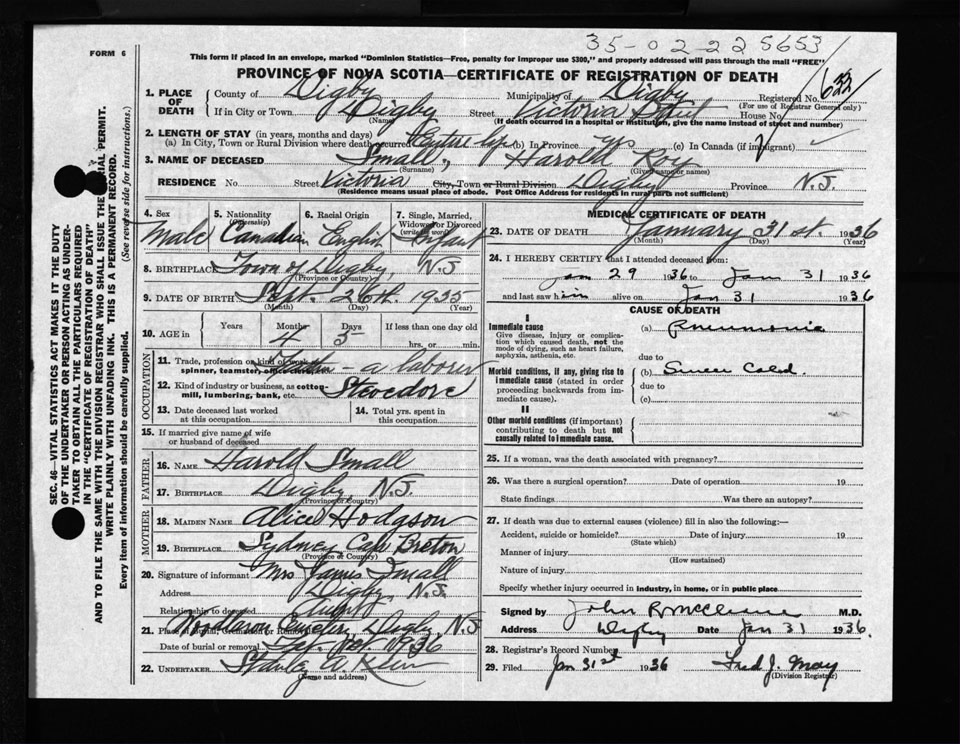 35-02-22 5653
FORM 6
This form if placed in an envelope, marked "Dominion Statistics—Free, penalty for improper use $300," and properly addressed will pass through the mail "FREE"
PROVINCE OF NOVA SCOTIA—CERTIFICATE OF REGISTRATION OF DEATH
SEC. 46—VITAL STATISTICS ACT MAKES IT THE DUTY
OF THE UNDERTAKER OR PERSON ACTING AS UNDER-
TAKER TO OBTAIN ALL THE PARTICULARS REQUIRED
IN THE "CERTIFICATE OF REGISTRATION OF DEATH"
AND TO FILE THE SAME WITH THE DIVISION REGISTRAR WHO SHALL ISSUE THE BURIAL PERMIT.
WRITE PLAINLY WITH UNFADING INK. THIS IS A PERMANENT RECORD.
Every item of information should be carefully supplied. (See reverse side for instructions.)
1. PLACE OF DEATH
County of Digby Municipality of Digby Registered No. 622
(For use of Registrar General only)
If in City or Town Digby Street Victoria House No.
(Name) (If death occurred in a hospital or institution, give the name instead of street and number)
2. LENGTH OF STAY (in years, months and days)
(a) In City, Town or Rural Division where death occurred Entire life (b) In Province yes (c) In Canada (if immigrant)
3. NAME OF DECEASED Small, Harold Roy
(Surname) (Given name or names)
RESIDENCE No. Street Victoria City, Town or Rural Division Digby Province N.S.
(Residence means usual place of abode. Post Office Address for residents in rural parts not sufficient)
4. Sex 5. Nationality (Citizenship) 6. Racial Origin 7. Single, Married, Widowed or Divorced (write the word)
Male Canadian English Infant
8. BIRTHPLACE Town of Digby, N.S.
(Province or Country)
9. DATE OF BIRTH Sept. 26th. 1935
(Month) (Day) (Year)
10. AGE in Years Months Days If less than one day old
4 5 hrs. or min.
OCCUPATION
11. Trade, profession or kind of work as spinner, teamster, - a labour
12. Kind of industry or business, as cotton-mill, lumbering, bank, etc. Stevedore
13. Date deceased last worked at this occupation
14. Total yrs. spent in this occupation
15. If married give name of wife or husband of deceased
FATHER
16. NAME Harold Small
17. BIRTHPLACE Digby, N.S.
(Province or Country)
MOTHER
18. MAIDEN NAME Alice Hodgson
19. BIRTHPLACE Sydney Cape Breton
(Province or Country)
20. Signature of informant Mrs James Small
Address Digby, N.S.
Relationship to deceased Aunt
21. Place of Burial, Cremation or Removal Cemetery, Digby, N.S
Date of burial or removal Feb. 1936
22. UNDERTAKER Stanley A.
(Name and address)
MEDICAL CERTIFICATE OF DEATH
23. DATE OF DEATH January 31st. 1936
(Month) (Day) (Year)
24. I HEREBY CERTIFY that I attended deceased from:
Jan 29 1936 to Jan 31 1936
and last saw him alive on Jan 31 1936
CAUSE OF DEATH
I
Immediate cause
Give disease, injury or complication which caused death, not the mode of dying, such as heart failure, asphyxia, asthenia, etc.
(a) Pneumonia
due to
Morbid conditions, if any, giving rise to immediate cause (stated in order proceeding backwards from immediate cause).
(b)
due to
(c)
II
Other morbid conditions (if important) contributing to death but not causally related to immediate cause.
25. If a woman, was the death associated with pregnancy?
26. Was there a surgical operation? Date of operation 19
State findings Was there an autopsy?
27. If death was due to external causes (violence) fill in also the following:—
Accident, suicide or homicide? Date of injury 19
(State which)
Manner of injury
(How sustained)
Nature of injury
Specify whether injury occurred in industry, in home, or in public place
Signed by John R McCleave M.D.
Address Digby Date Jan 31 1936.
28. Registrar's Record Number
29. Filed Jan 31st 1936 Fred J. May
(Division Registrar)